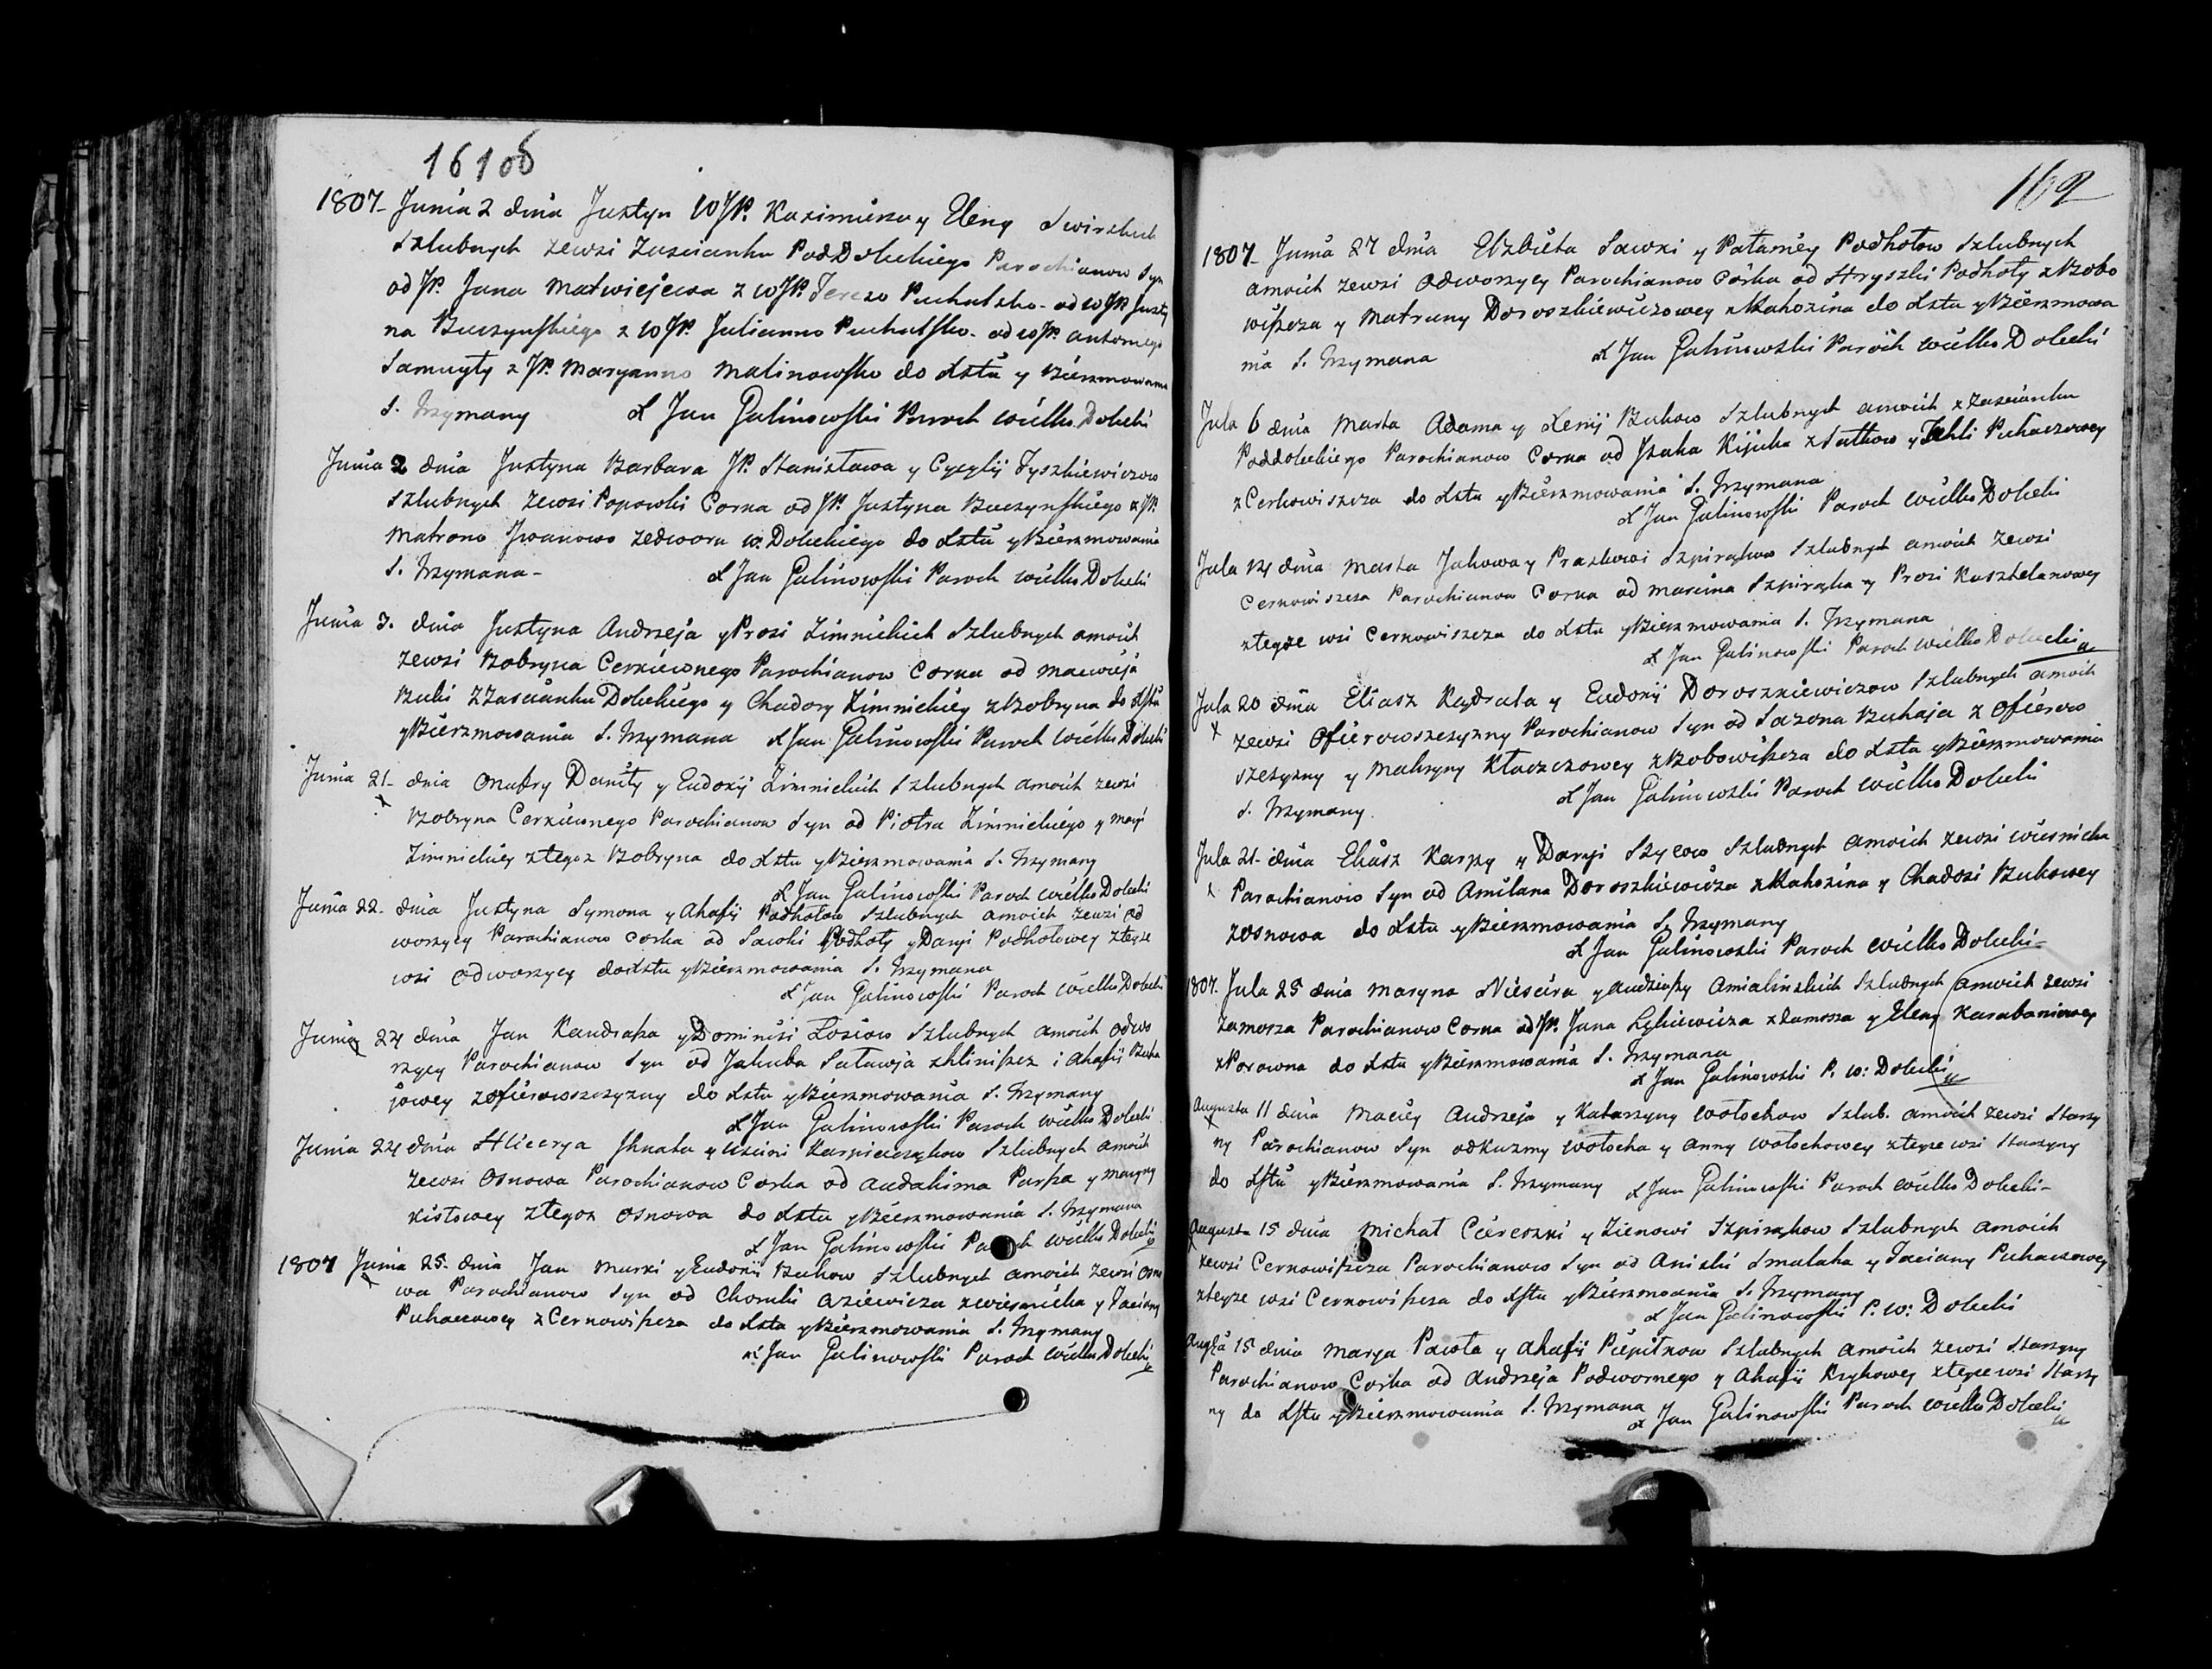 161 об
1807 Junia 2 dnia Justyn WJP. Kazimierza y Eleny Swirskich
Szlubnych zewsi Zascianku PodDolckiego Parochianow Syn
od JP. Jana Matwiejewa z WJP. Tereso Puchalsko. od WJP. Justy
na Buczynskiego z WJP. Julianno Puchalsko. od WJP. antoniego
Samuyły z JP. Maryanno Malinowsko do Xstu y Bierzmowania
S. Trzymany X Jan Galinowski Paroch wielko Dolcki
Junia 2 dnia Justyna Barbara JP. Stanisława y Cycylij Tyszkiewiczow
szlubnych zewsi Popowki Corka od JP. Justyna Buczynskiego z JP.
Matrono Jwanowo zedworu w. Dolckiego do Xstu y Bierzmowania
S. Trzymana - X Jan Galinowski Paroch wielko Dolcki
Junia 3. dnia Justyna Andrzeja y Prosi Zimnickich Szlubnych amoich
zewsi Bobryna Cerkiewnego Parochianow Corka od Macwieja
Buki zZascianku Dolckiego y Chadory Zimnickiey zBobryna do Xstu
y Bierzmowania S. Trzymana X Jan Galinowski Paroch wielko Dolcki
Junia 21 - dnia Onufry Daniły y Eudoxij Zimnickich szlubnych amoich zewsi
Bobryna Cerkiewnego Parochianow Syn od Piotra Zimnickiego y maryi
Zimnickiey ztegoz Bobryna do Xstu y Bierzmowania S. Trzymany
X Jan Galinowski Paroch wielko Dolcki
Junia 22. dnia Justyna Symona y Ahafij Podhołow szlubnych amoich zewsi od
worzycy Parochianow corka od Sawki Podhoły y Daryi Podhołowey zteyze
wsi odworzycy do Xstu y Bierzmowania S. Trzymana
X Jan Galinowski Paroch wielko Dolcki
Junia 24 dnia Jan Kandrata y Dominisi Łosiow Szlubnych amoich odwo
rzycy Parochianow Syn od Jakuba Saławja zhliniszcz i Ahafij Buha
jowey zofierowszczyzny do Xstu y Bierzmowania S. Trzymany
X Jan Galinowski Paroch wielko Dolcki
Junia 24 dnia Hlicerya Jhnata y Uscini Karpieczykow Szlubnych amoich
zewsi Osnowa Parochianow Corka od audakima Parsza y maryny
Kisłowey ztegoz Osnowa do Xstu y Bierzmowania S. Trzymana
X Jan Galinowski Paroch wielko Dolcki
1807 Junia 25. dnia Jan Marki y Eudoxij Bukow szlubnych amoich zewsi Osno
wa Parochianow Syn od Chomki aziewicza zwiesnicka y Taciany
Puhaczowey zCernowiszcza do Xstu y Bierzmowania S. Trzymany
X Jan Galinowski Paroch wielko Dolcki
162
1807 - Junia 27 dnia Elzbieta Sawki y Pałaniey Podhołow szlubnych
amoich zewsi Odworzycy Parochianow Corka od Hryszki Podhoły zBobo
wiszcza y Matruny Doroszkiewiczowey zKahozina do Xstu y Bierzmowa
nia S. Trzymana X Jan Galinowski Paroch wielko Dolcki
Jula 6 dnia Marta Adama y Xenij Bukow Szlubnych amoich zZascianku
Poddolckiego Parochianow Corka od Jsaka Kijuka zSutkow y Tekli Puhaczowey
zCerkowiszcza do Xstu y Bierzmowania S. Trzymana
X Jan Galinowski Paroch wielko Dolcki
Jula 14 dnia Marta Jakowa y Praskowi Szpirątkow Szlubnych amoich zewsi
Cernowiszcza Parochianow Corka od Marcina Szpirątka y Prosi Kasztelanowey
zteyze wsi Cernowiszcza do Xstu y Bierzmowania S. Trzymana
X Jan Galinowski Paroch wielko Dolcki
Jula 20 dnia Eliasz Kądrata y Eudoxij Doroszkiewiczow Szlubnych amoich
zewsi Ofierowszczyzny Parochianow Syn od Sazona Buhaja z Ofierow
szczyzny y Matryny Kłaczczowey zBobowiszcza do Xstu y Bierzmowania
S. Trzymany. X Jan Galinowski Paroch wielko Dolcki
Jula 21 - dnia Eliasz Karpy y Daryi Szycow Szlubnych amoich zewsi wiesnicka
Parochianow Syn od Amilana Doroszkiewicza zKahozina y Chadosi Bukowey
zosnowa do Xstu y Bierzmowania S. Trzymany
X Jan Galinowski Paroch wielko Dolcki
1807. Jula 25 dnia Maryna Niescira y Audziuszy Amialinskich Szlubnych amoich zewsi
Zamosza Parochianow Corka od JP. Jana Łękiewicza zZamosza y Eleny Karabaniowey
zPorowna do Xstu y Bierzmowania S. Trzymana
X Jan Galinowski P. w: Dolcki
Augusta 11 dnia Maciey Andrzeja y Katarzyny wołochow Szlub. amoich zewsi Starzy
ny Parochianow Syn odKuzmy wołocha y Anny wołochowey zteyze wsi Starzyny
do Xstu y Bierzmowania S. Trzymany X Jan Galinowski Paroch wielko Dolcki -
Augusta 15 dnia Michał Ciereszki y Zienowi Szpirątkow szlubnych amoich
zewsi Cernowiszcza Parochianow Syn od Aniski Smalaka y Taciany Puhaczowey
zteyze wsi Cernowiszcza do Xstu y Bierzmowania S. Trzymany
X Jan Galinowski P. w: Dolcki
Augsta 15 dnia Marya Pawła y Ahafij Piepitkow szlubnych amoich zewsi Starzyny
Parochianow Corka od Andrzeja Podwornego y Ahafij Krykowey zteyze wsi Starzy
ny do Xstu y Bierzmowania S. Trzymana X Jan Galinowski Paroch wielko Dolcki